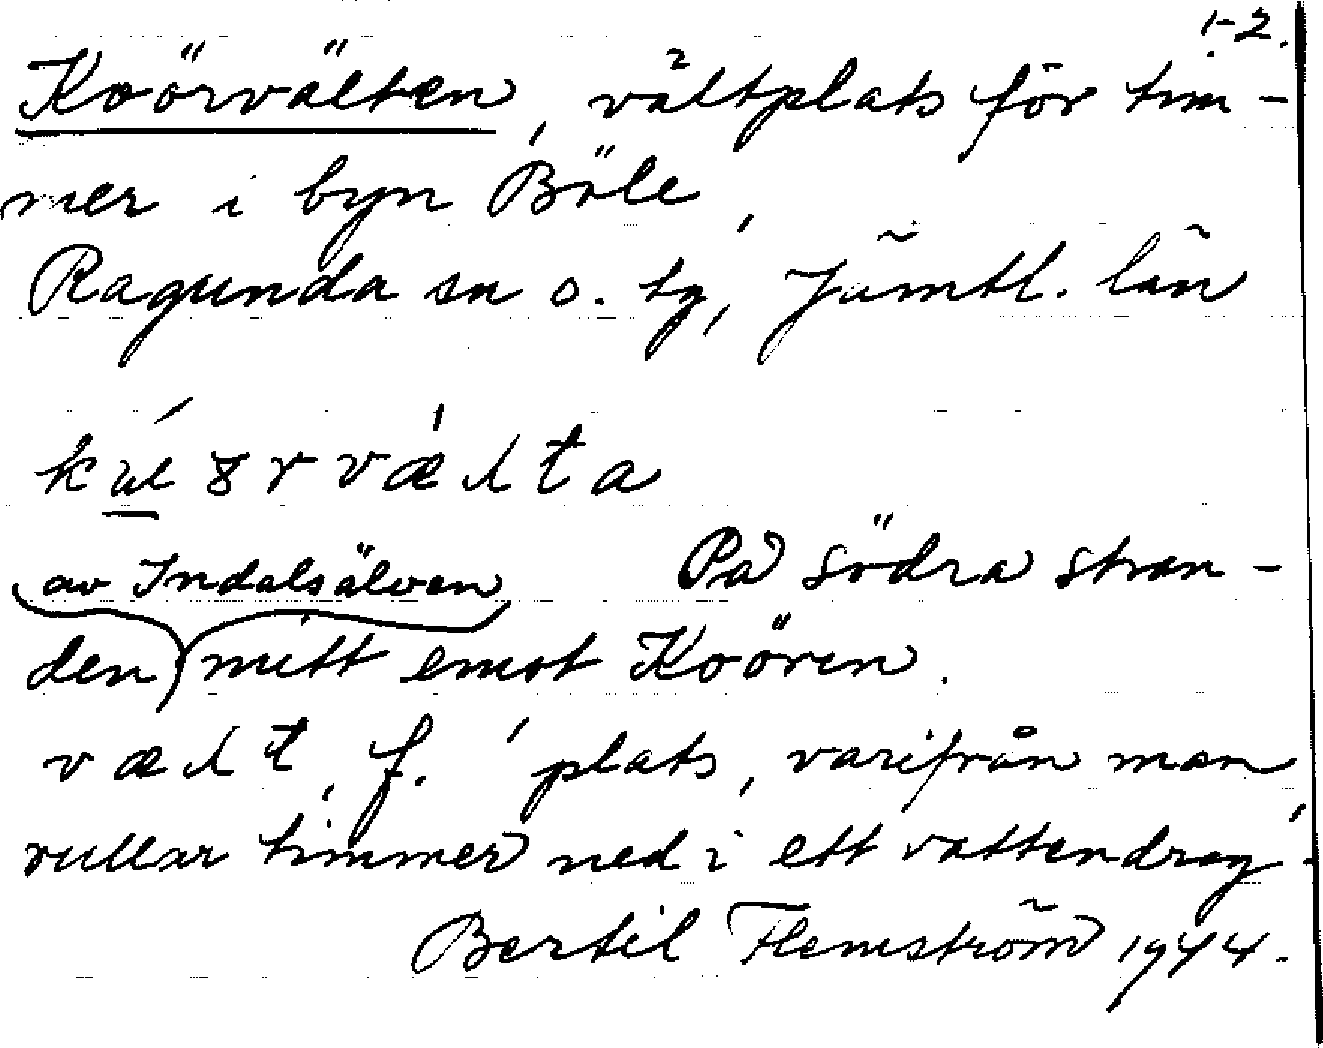 1-2.
Koörvälten, vältplats för tim-
mer i byn Böle,
Ragunda sn o. tg, Jämtl. län
På södra stran-
av Indalsälven
den mitt emot Koören.
f. 'plats, varifrån man
rullar timmer ned i ett vattendrag'.
Bertil Flemström 1944.